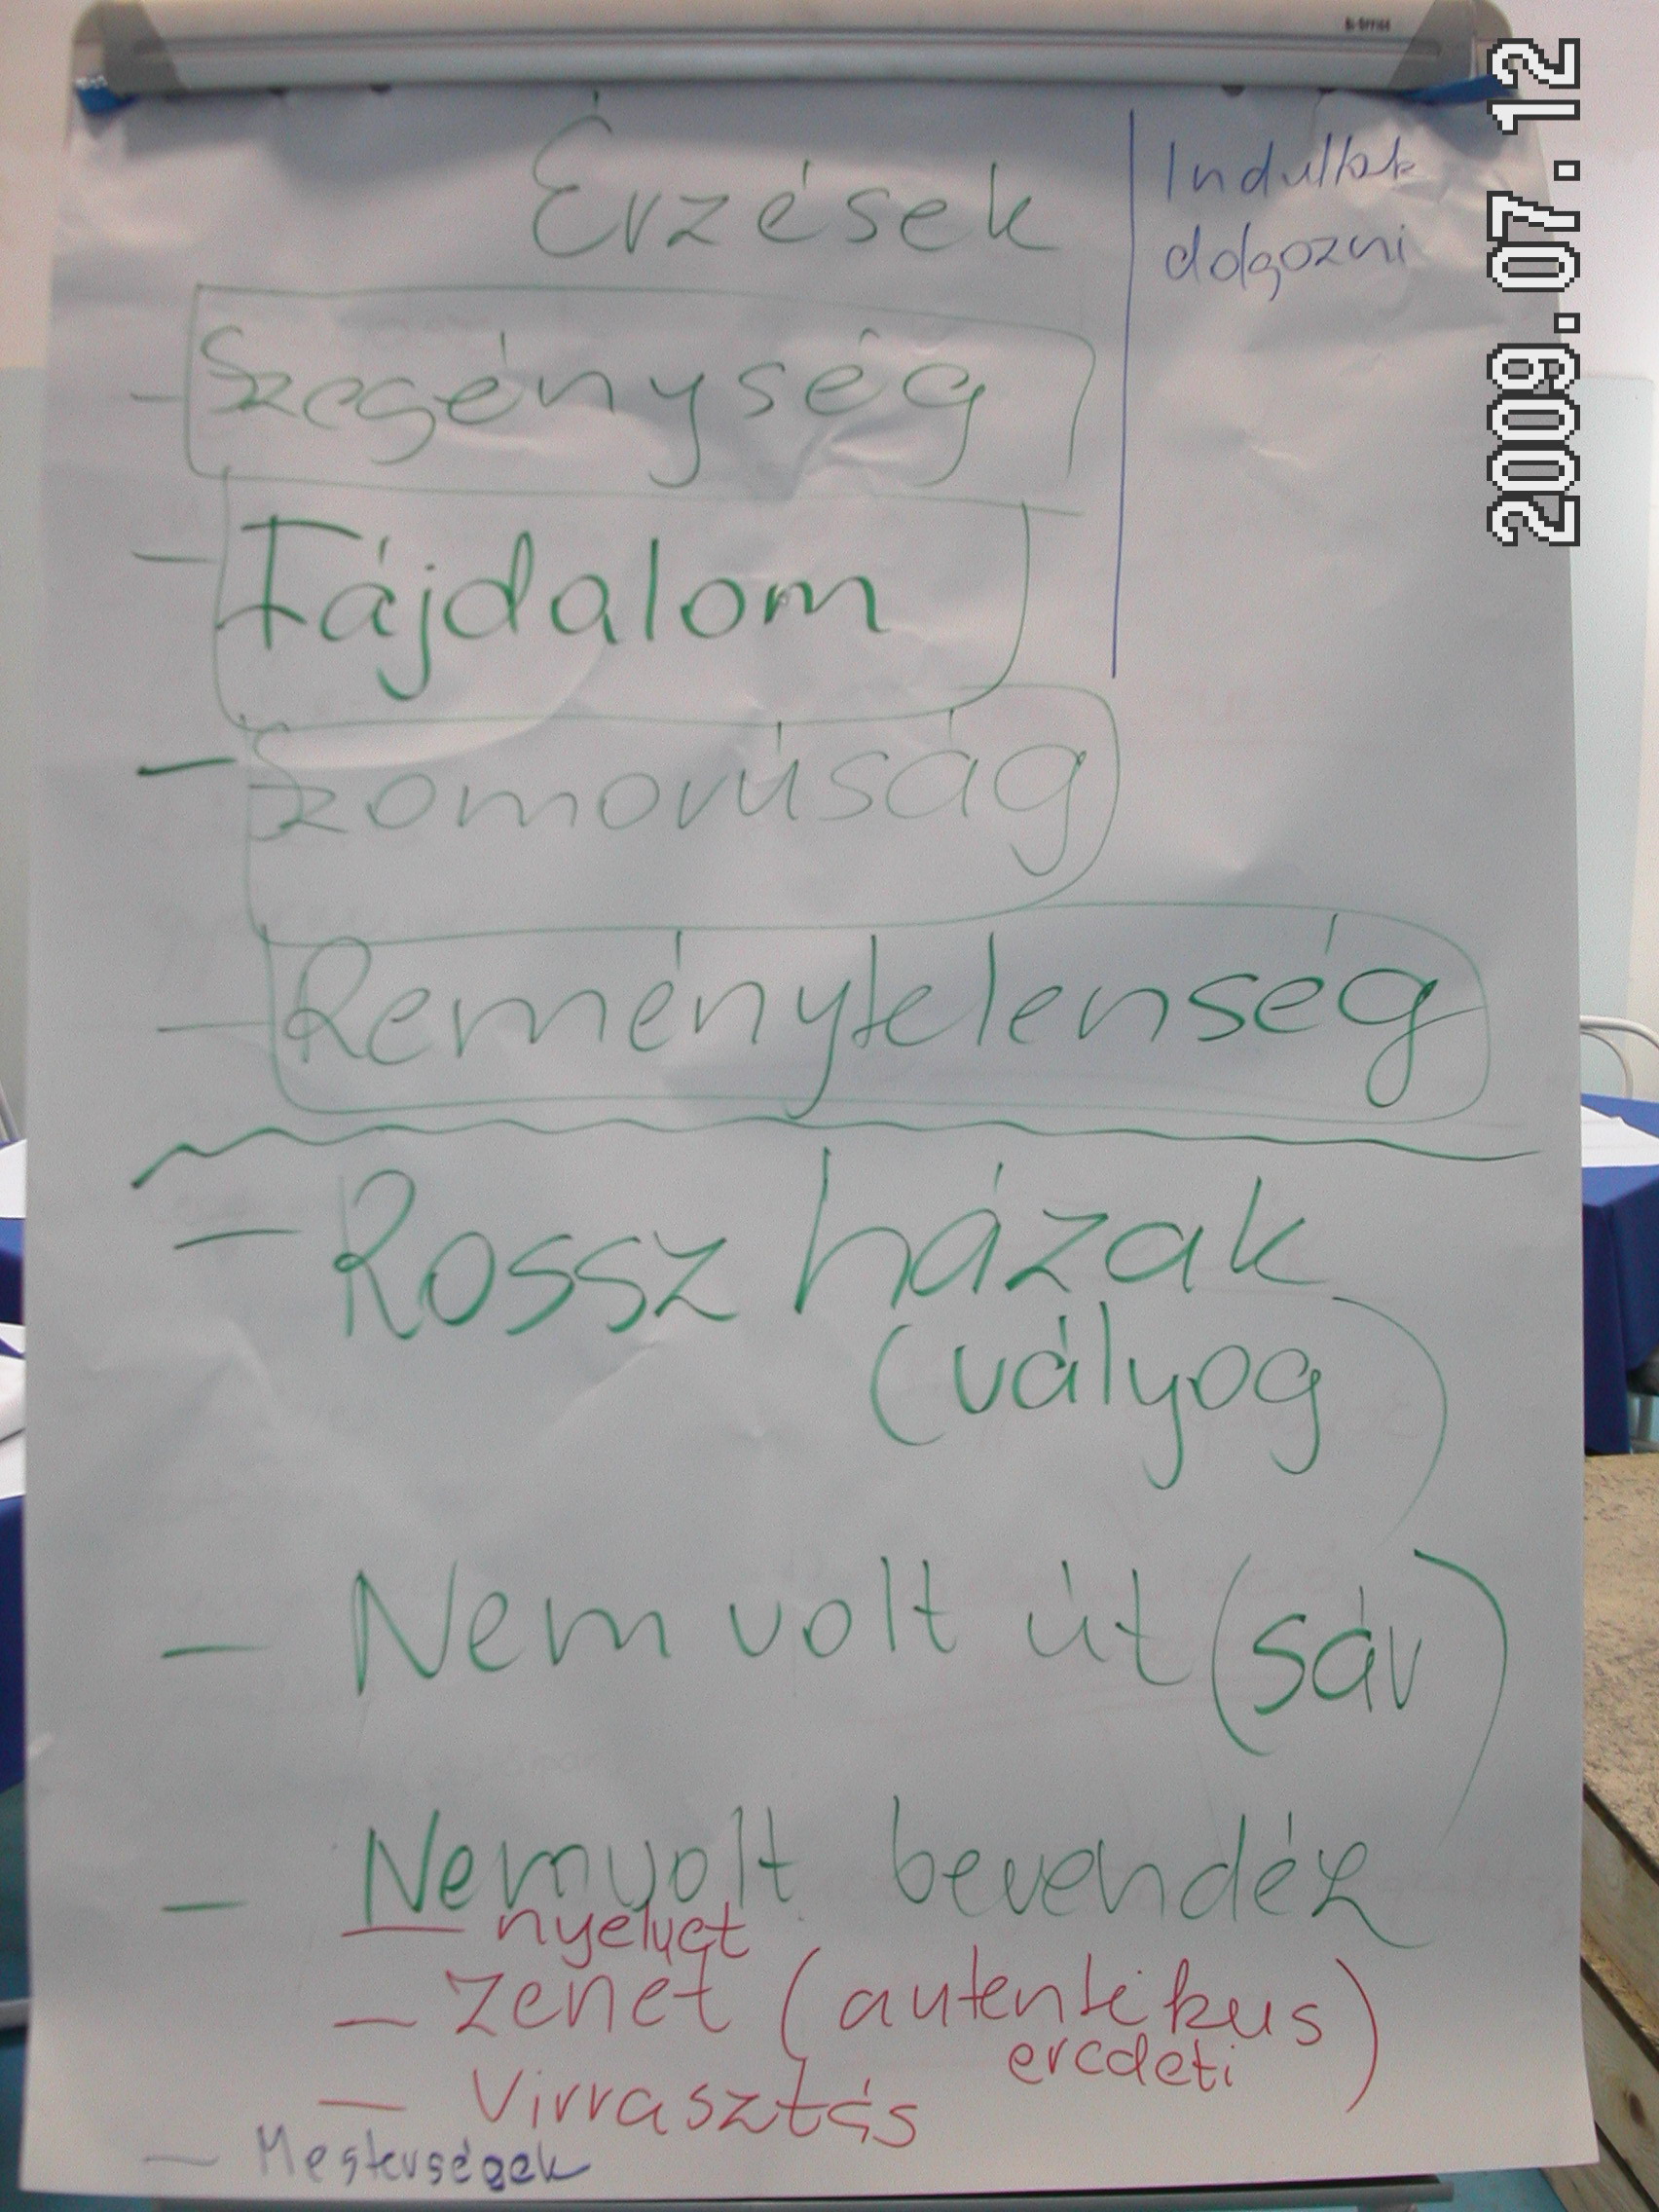 Érzések
Indultak
dolgozni
- Szegénység
- Fájdalom
- Szomorúság
- Reménytelenség
- Rossz házak
(vályog)
- Nem volt út (sáv)
- Nem volt bevendéz
- nyelvet
- zenét (autentikus
eredeti)
- Virrasztás
- Mesterségek
2009.07.12